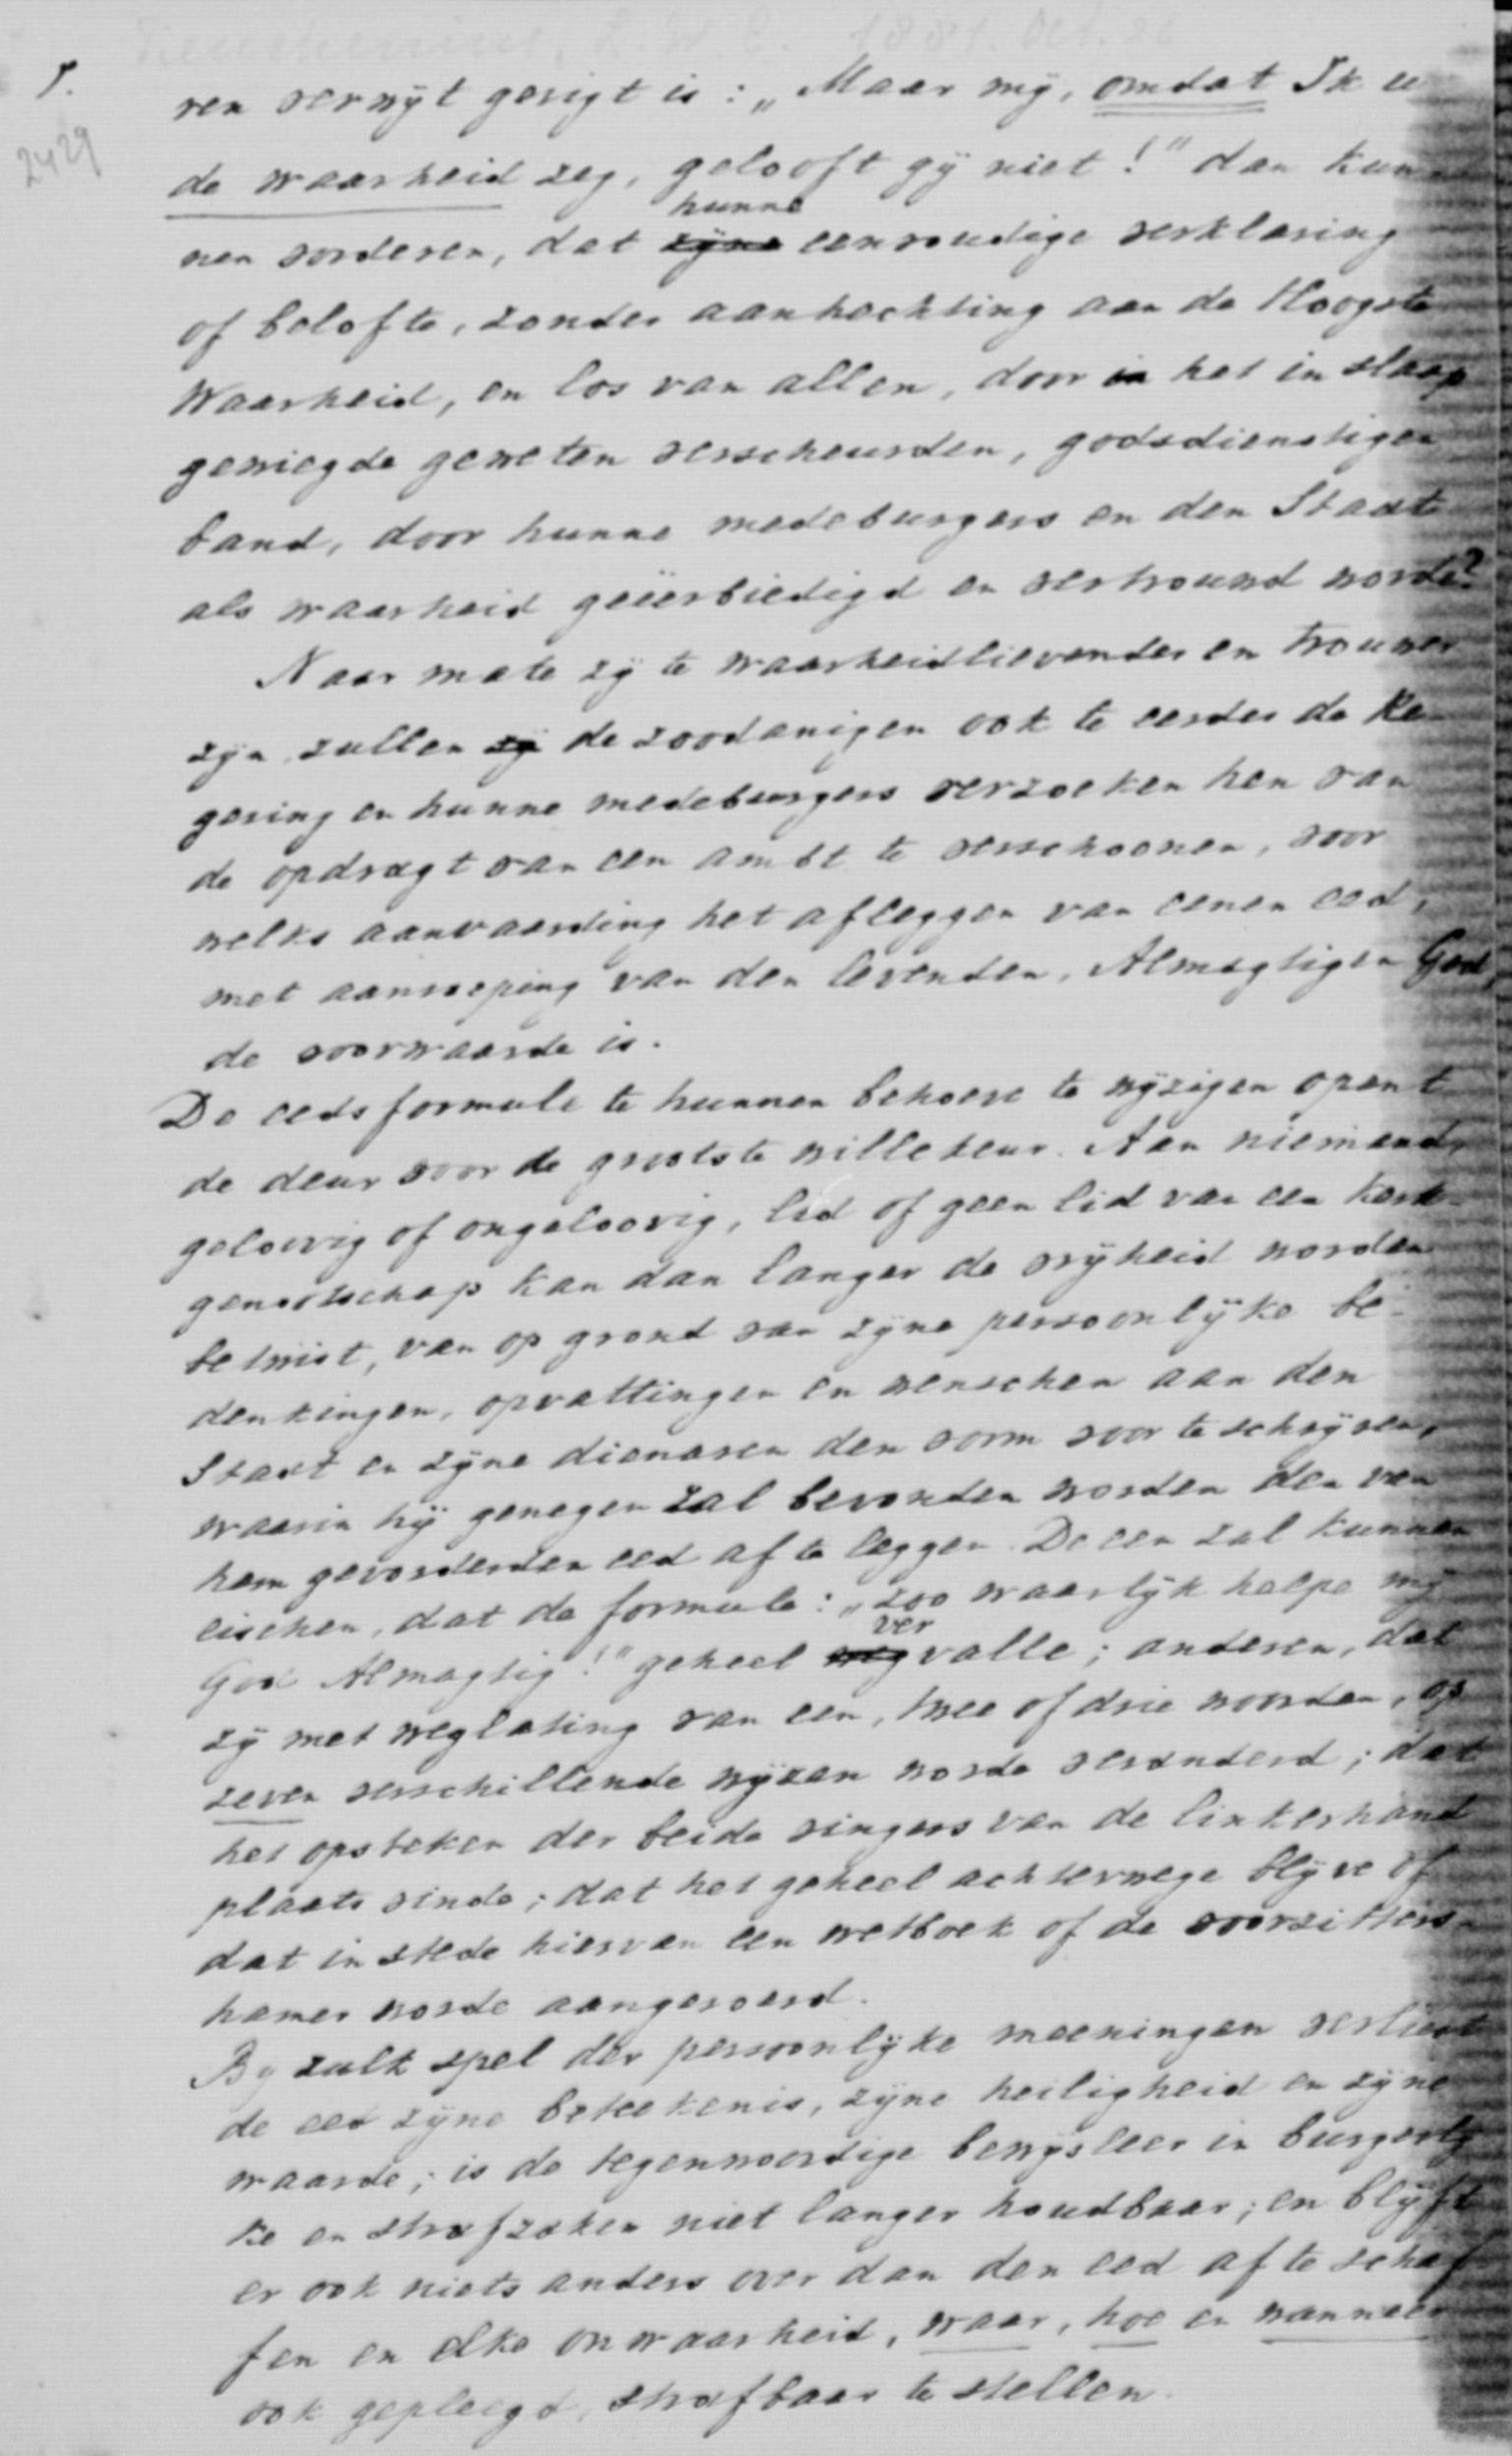 Keuchenius, L. W. C. 1881. Oct. 26
5.
2429
ren verwyt gerigt is: „Maar my, omdat Ik u
de waarheid zeg, gelooft gy niet!” dan kun-
hunne
nen vorderen, dat zyne eenvoudige verklaring
of belofte, zonder aanhechting aan de Hoogste
Waarheid, en los van allen, door in het in slaap
gewiegde geweten verscheurden, godsdienstigen
band, door hunne medeburgers en den Staat
als waarheid geëerbiedigd en vertrouwd worde?
Naar mate zy te waarheidlievender en trouwer
zyn zullen zy de zoodanigen ook te eerder de Re-
gering en hunne medeburgers verzoeken hen van
de opdragt van een ambt te verschoonen, voor
welks aanvaarding het afleggen van eenen eed,
met aanroeping van den levenden, Almagtigen God,
de voorwaarde is.
De eedsformule te hunnen behoeve te wyzigen opent
de deur voor de grootste willekeur. Aan niemand,
geloovig of ongeloovig, lid of geen lid van een kerk-
genootschap kan dan langer de vryheid worden
betwist, van op grond van zyne persoonlyke be-
denkingen, opvattingen en wenschen aan den
Staat en zyne dienaren den vorm voor te schryven,
waarin hy genegen zal bevonden worden den van
hem gevorderden eed af te leggen. De een zal kunnen
eischen, dat de formule: „zoo waarlyk helpe my
ver
God Almagtig!” geheel wegvalle; anderen, dat
zy met weglating van een, twee of drie woorden, op
zeven verschillende wyzen worde veranderd; dat
het opsteken der beide vingers van de linkerhand
plaats vinde; dat het geheel achterwege blyve of
dat in stede hiervan een wetboek of de voorzitters-
hamer worde aangeroerd.
By zulk spel der persoonlyke meeningen verliest
de eed zyne beteekenis, zyne heiligheid en zyne
waarde; is de tegenwoordige bewysleer in burgerly-
ke en strafzaken niet langer houdbaar; en blyft
er ook niets anders over dan den eed af te schaf-
fen en elke onwaarheid, waar, hoe en wanneer
ook gepleegd, strafbaar te stellen.